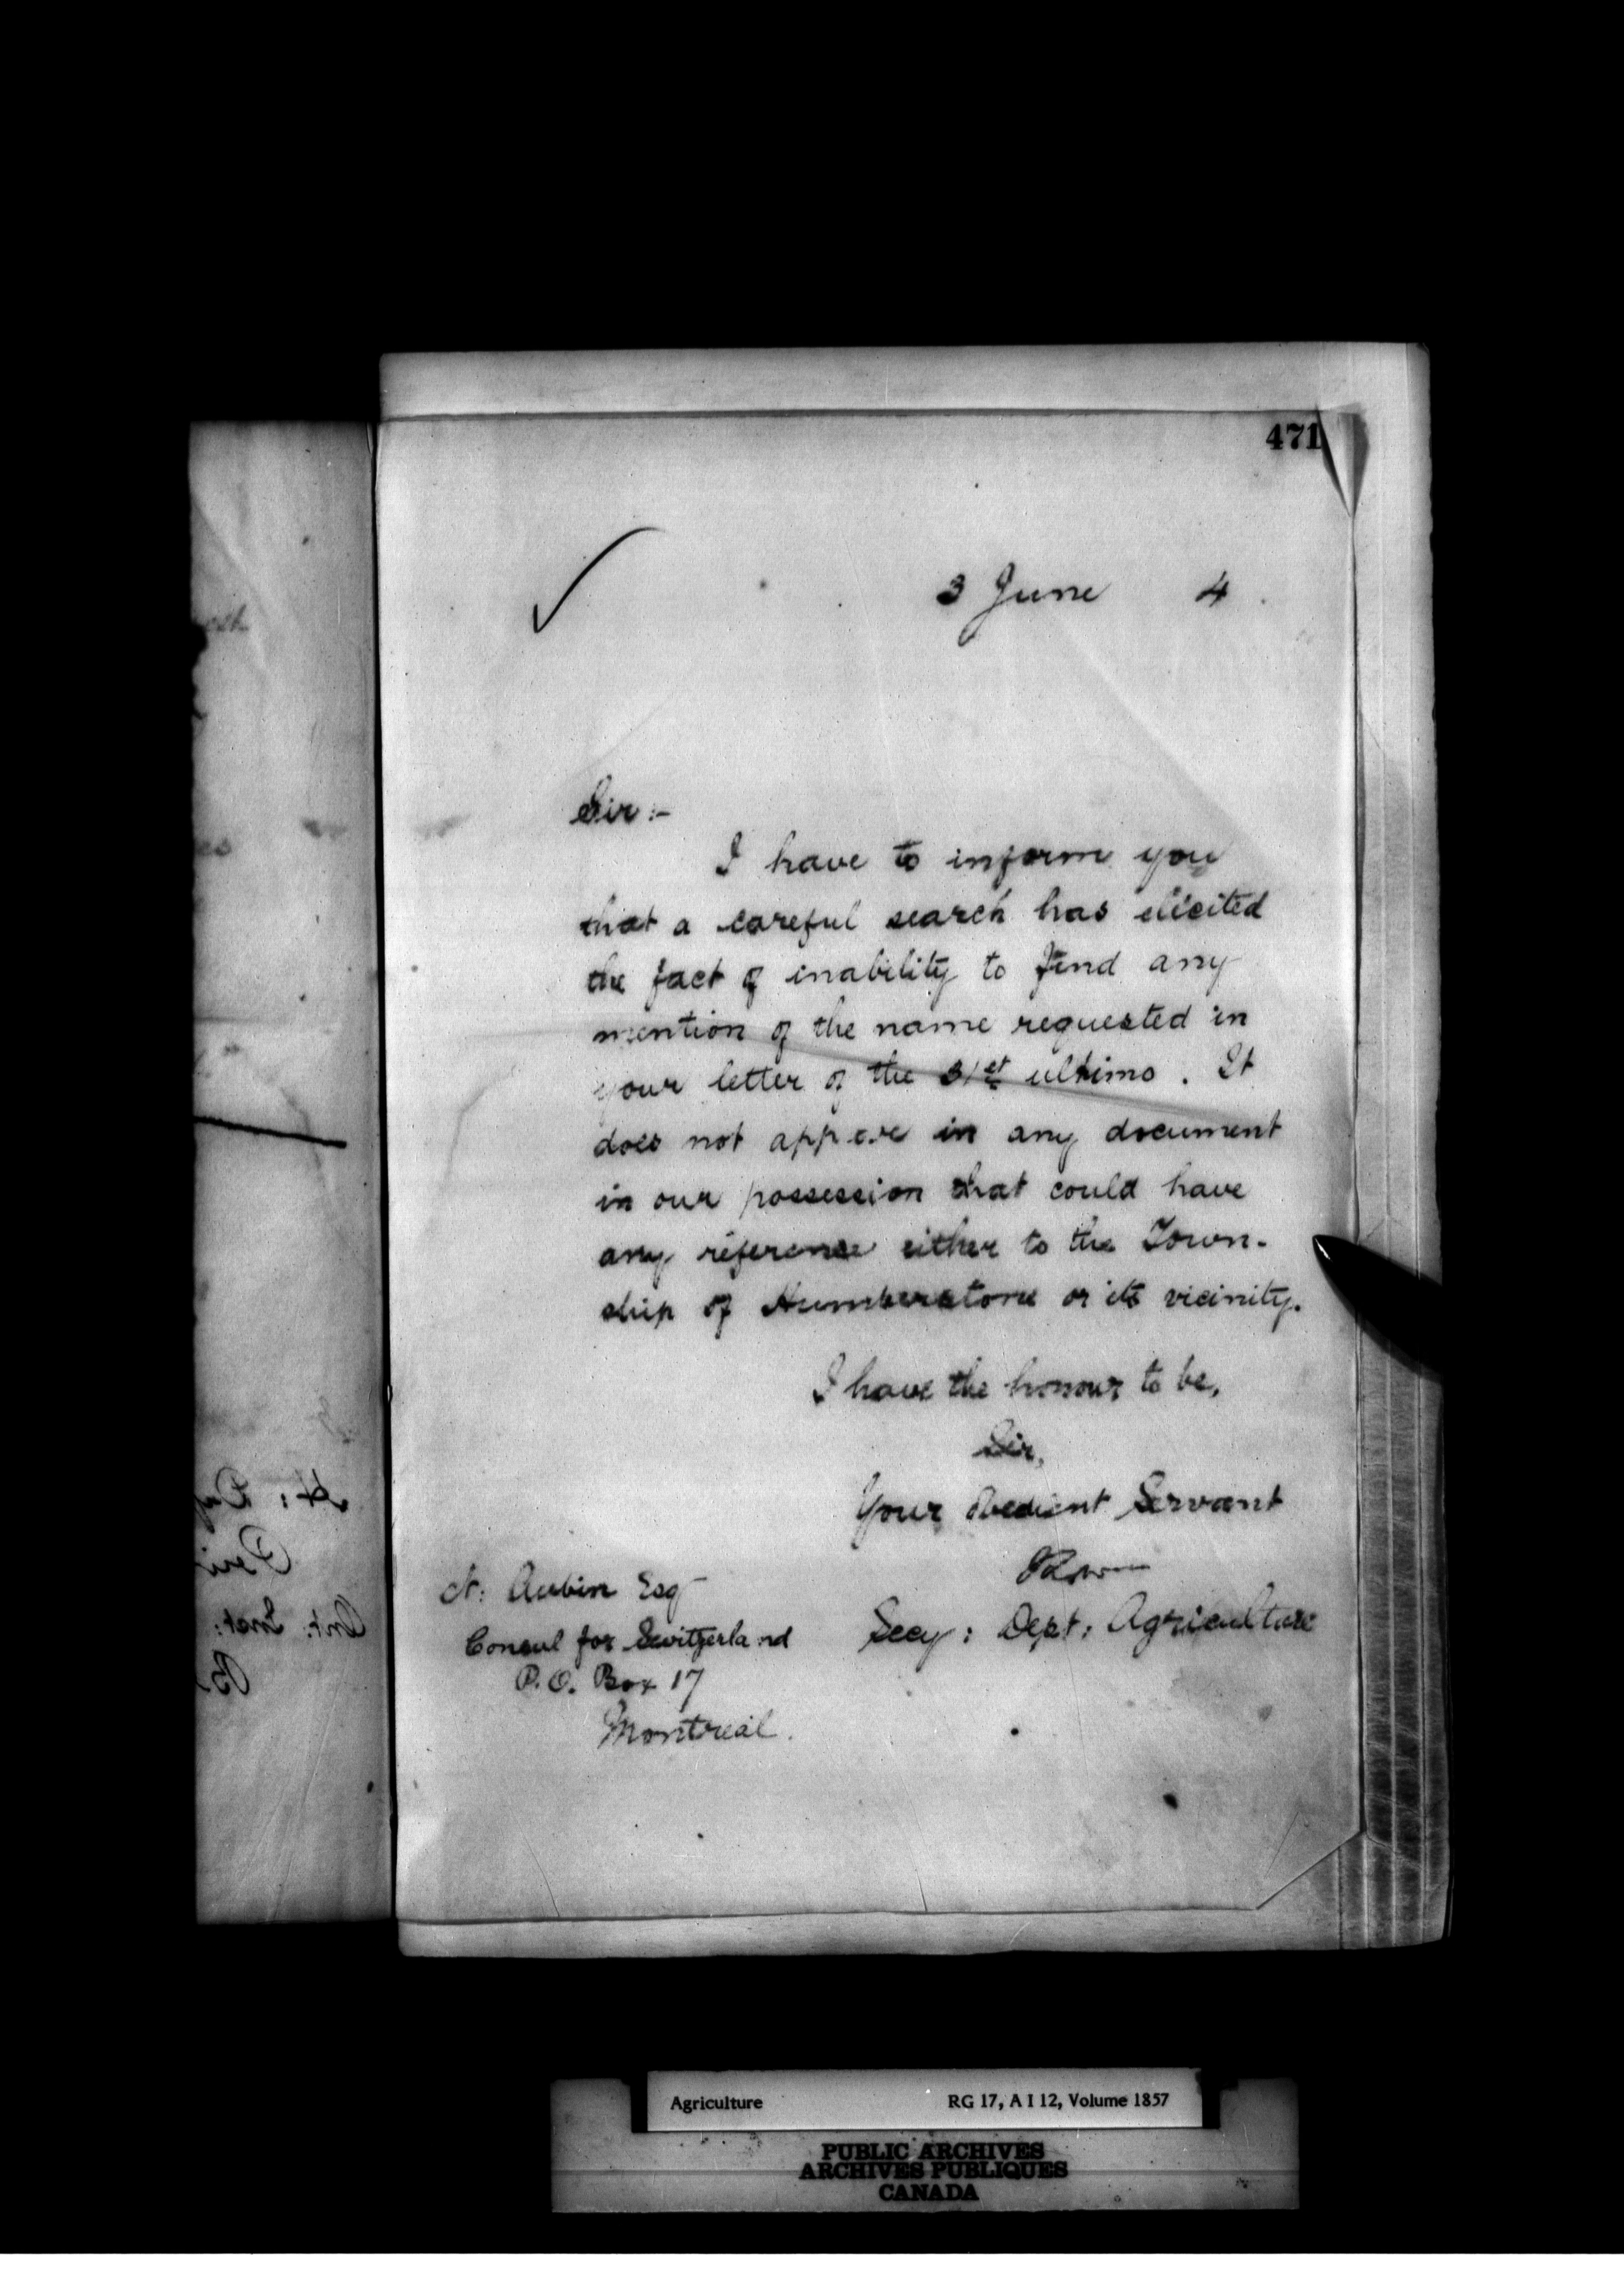 471
3 June 4
Sir:-
I have to inform you
that a careful search has elicited
the fact of inability to find any
mention of the name requested in
your letter of the 31st ultimo. It
does not appear in any document
in our possession that could have
any reference either to the Town-
ship of Humberstone or its vicinity.
I have the honour to be,
Sir,
Your obedient Servant
Secy: Dept: Agriculture
N. Aubin Esq
Consul for Switzerland
P.O. Box 17
Montreal.
Agriculture RG 17, A I 12, Volume 1857
PUBLIC ARCHIVES
ARCHIVES PUBLIQUES
CANADA